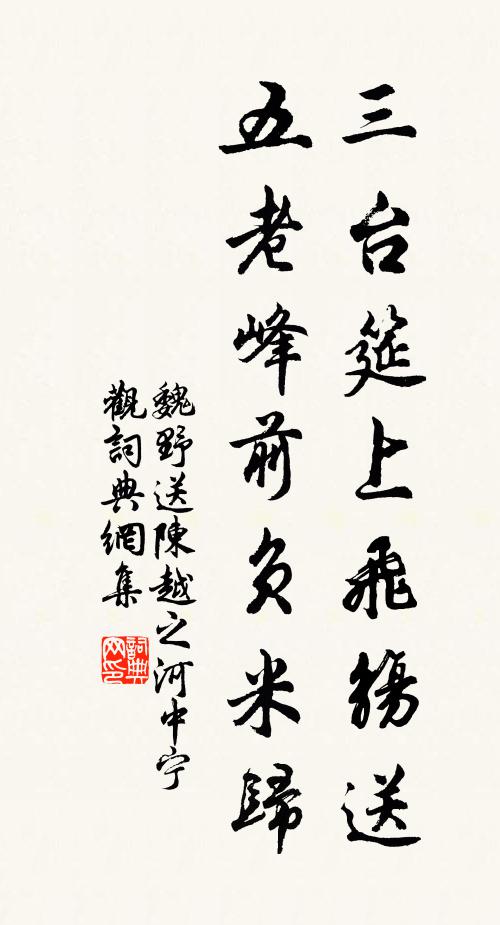 三台筵上飛觴送
五老峰前負米歸
魏野送陳越之河中宁
觀詞典網集
詞典网印